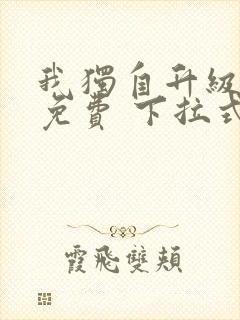 我獨自升級
免費 下拉式
霞飛雙頰